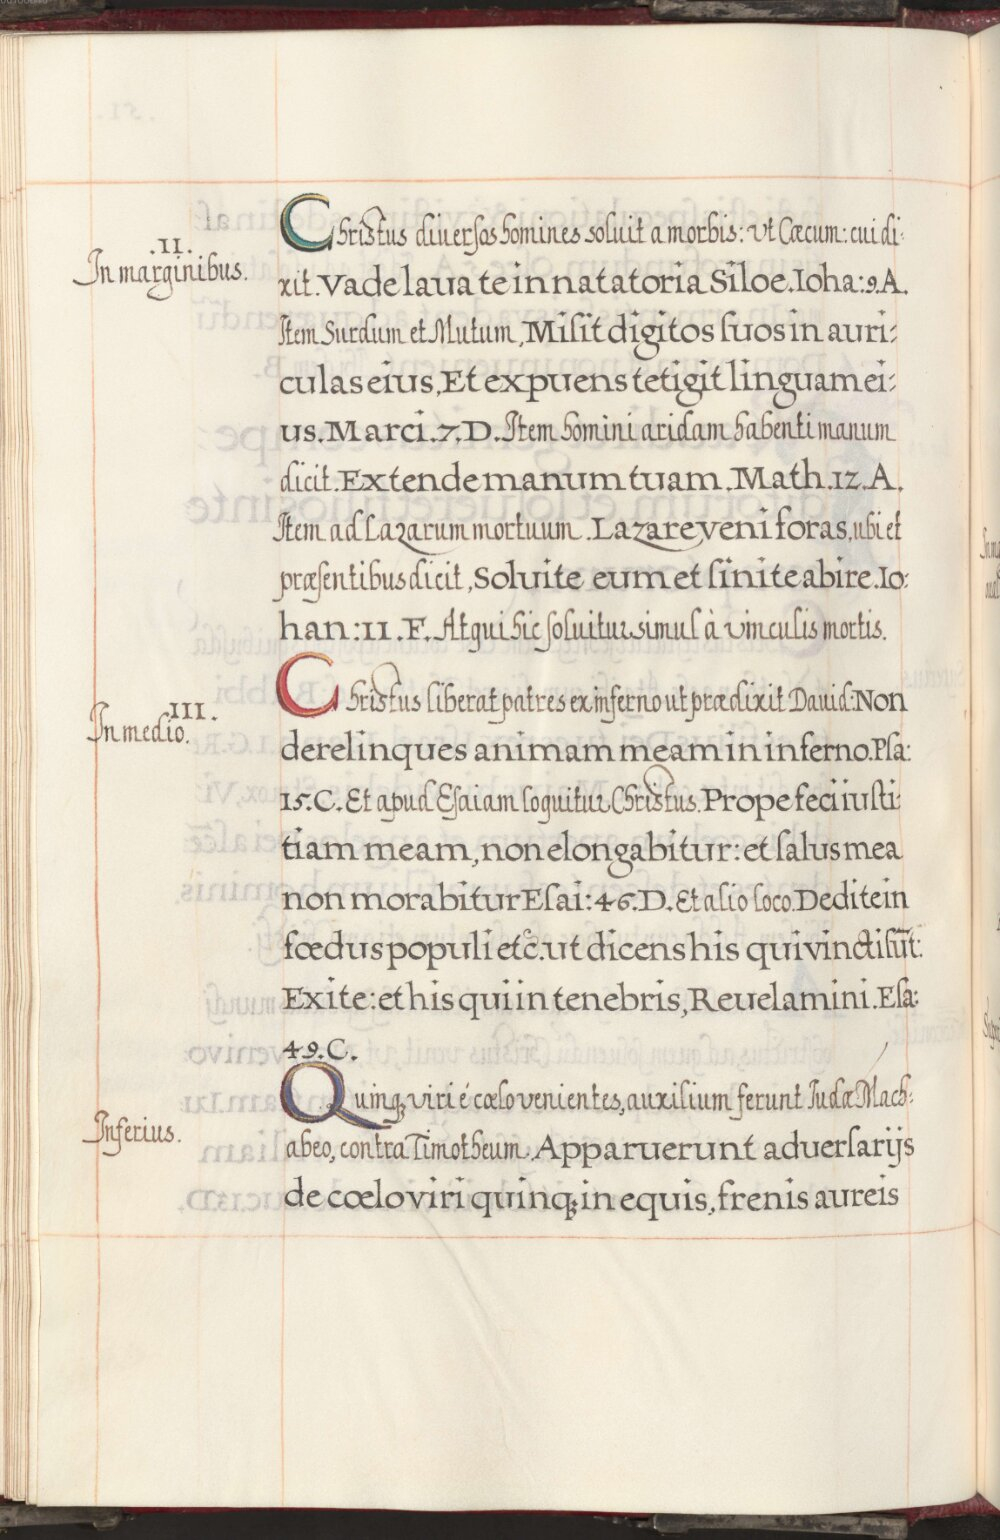 .II.
In marginibus.
Christus diuersos homines soluit a morbis: vt Cæcum: cui di:
xit. Vade lauate in natatoria Siloe. Ioha: 9. A.
Item Surdum et Mutum, Misit digitos suos in auri:
culas eius, Et expuens tetigit linguam ei:
us. Marci. 7. D. Item homini aridam habenti manum
dicit. Extende manum tuam. Math. 12. A.
Item ad Lazarum mortuum. Lazare veni foras, ubi et
præsentibus dicit, Soluite eum et sinite abire. Io:
han: 11. F. Atqui hic soluitur simul à vinculis mortis.
.III.
In medio.
Christus liberat patres ex inferno ut prædixit Dauid: Non
derelinques animam meam in inferno. Psa:
15. C. Et apud Esaiam loquitur Christus. Prope feci iusti:
tiam meam, non elongabitur: et salus mea
non morabitur Esai: 46. D. Et alio loco. Dedi te in
fœdus populi etc̃. ut dicens his qui vincti sũt:
Exite: et his qui in tenebris, Reuelamini. Esa:
49. C.
Inferius.
Quinq; viri é cœlo venientes, auxilium ferunt Iudæ Mach:
abeo, contra Timotheum. Apparuerunt aduersarijs
de cœlo viri quinq; in equis, frenis aureis